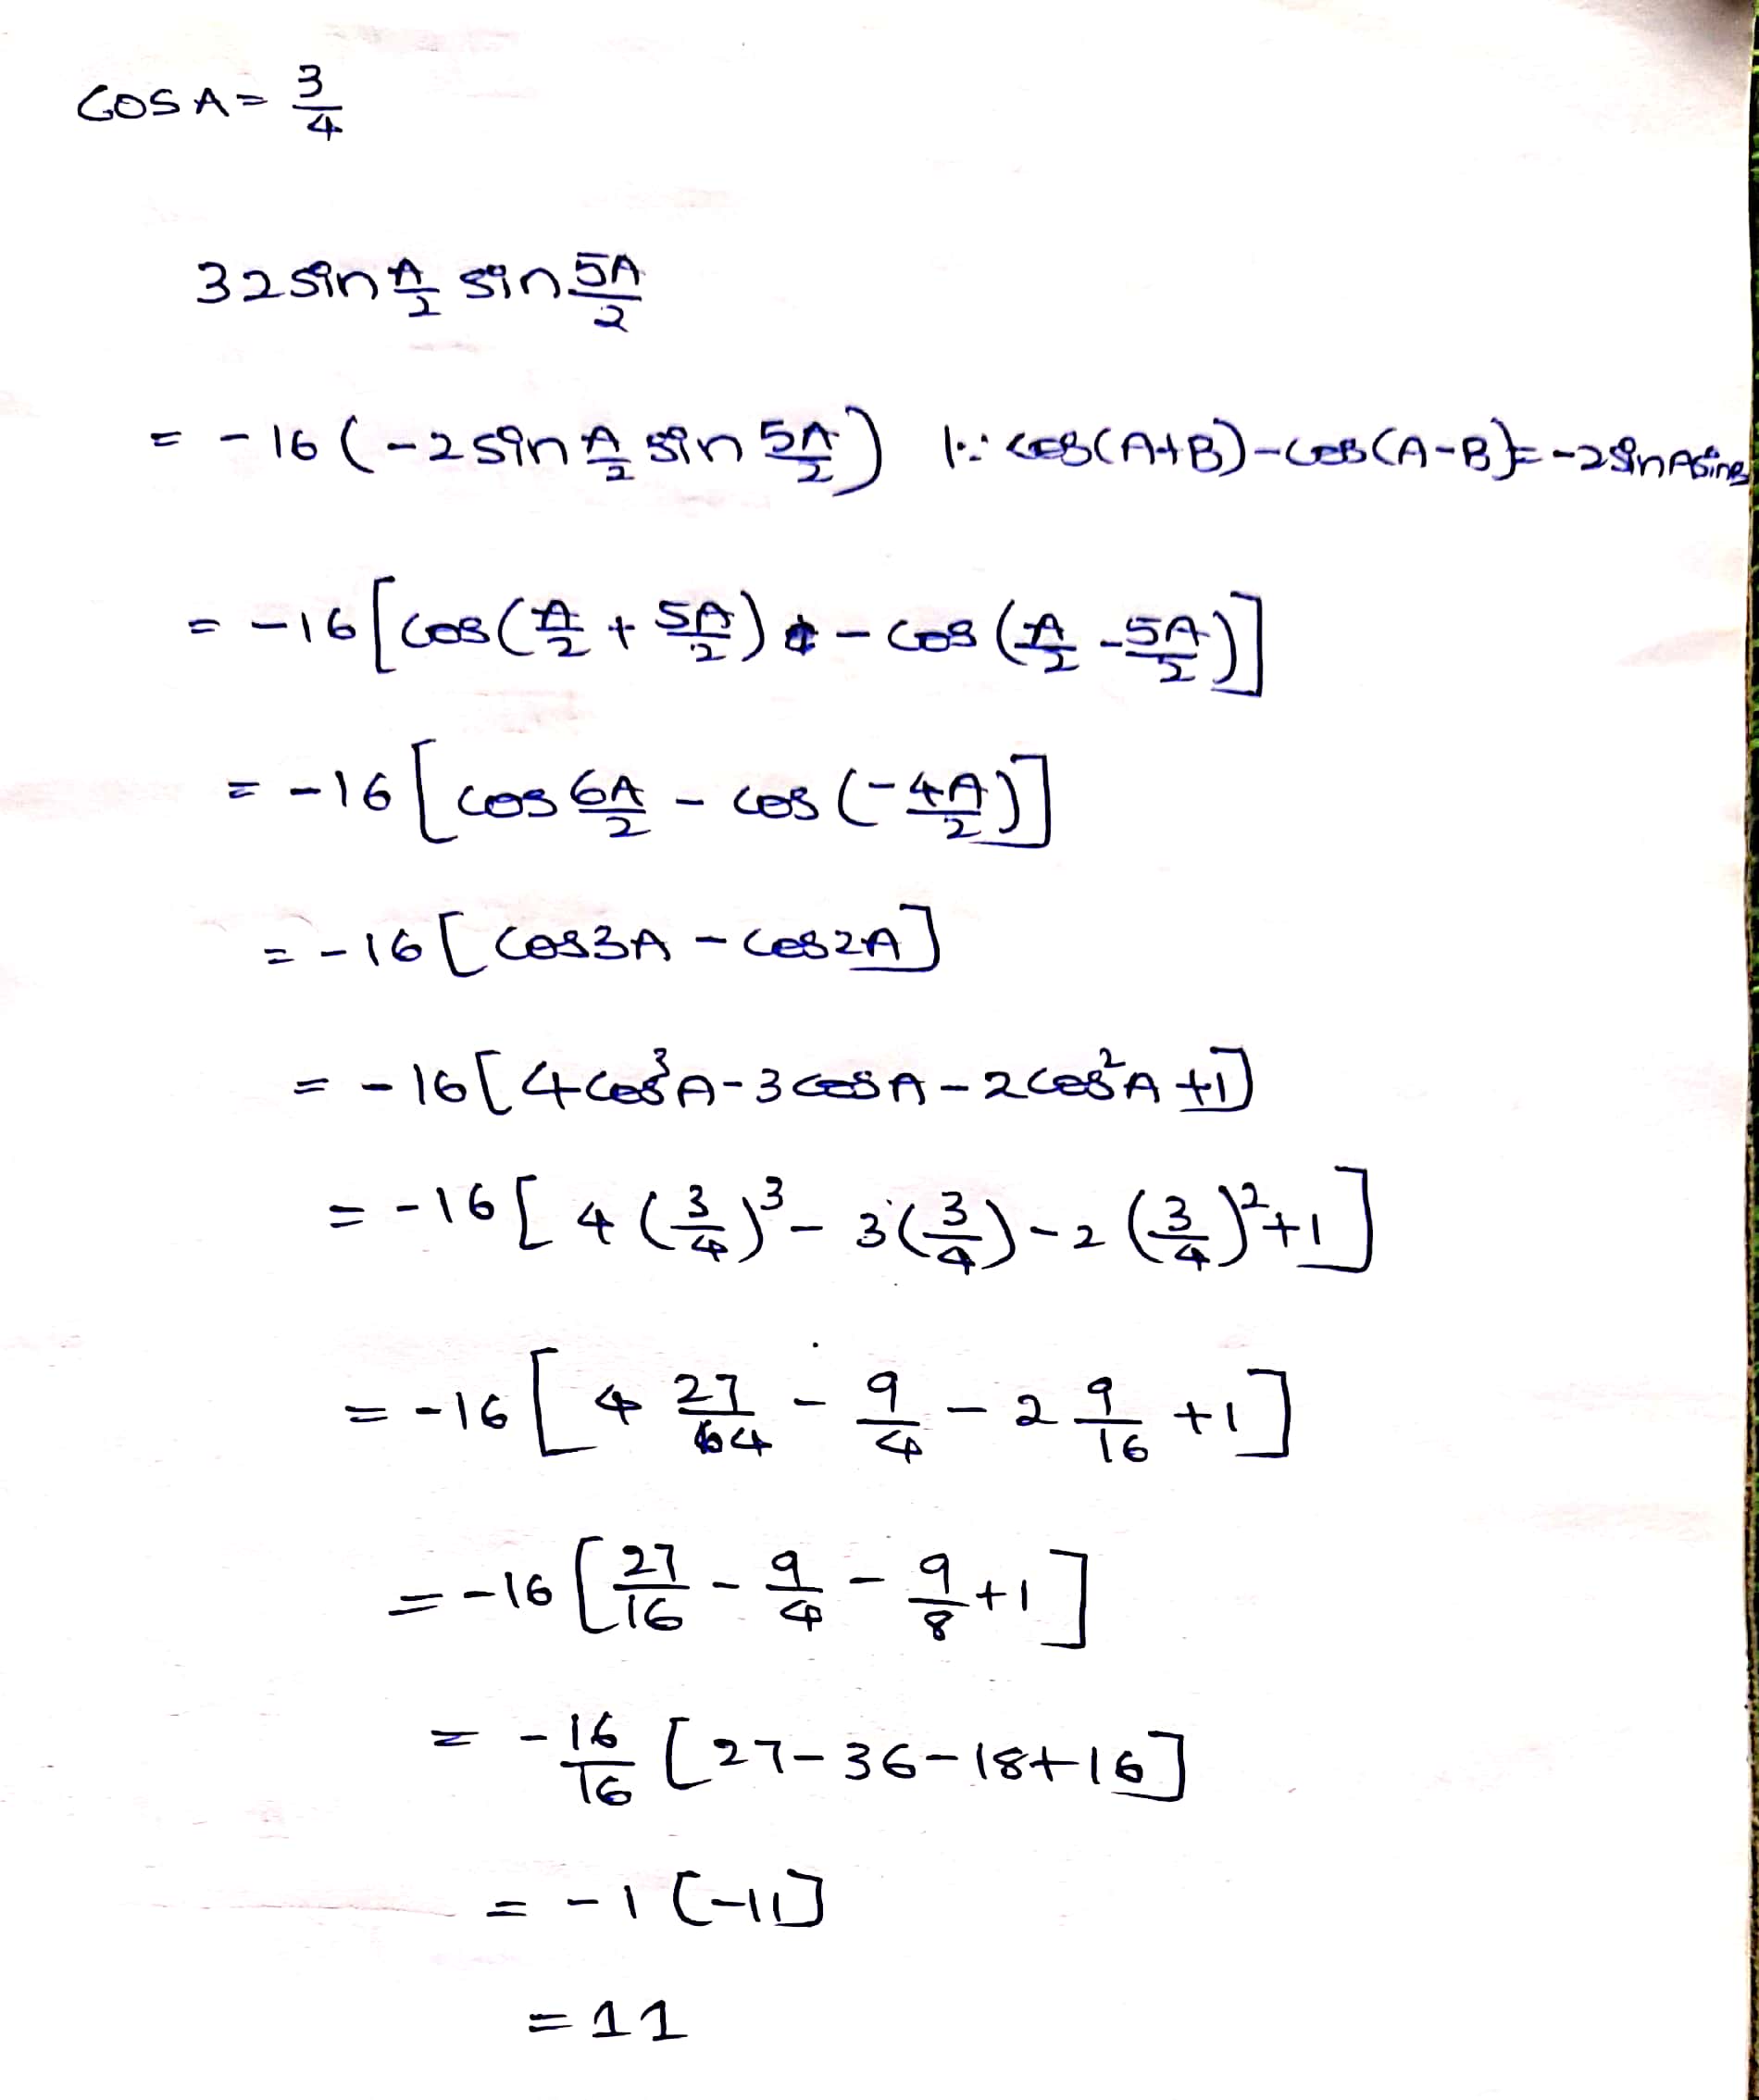 cos A = 3/4
32 sin A/2 sin 5A/2
= -16 (-2 sin A/2 sin 5A/2) |∵ cos(A+B)-cos(A-B)=-2sinAsinB
= -16 [cos(A/2 + 5A/2) - cos (A/2 - 5A/2)]
= -16 [cos 6A/2 - cos (-4A/2)]
= -16 [cos3A - cos2A]
= -16 [4cos³A-3cosA-2cos²A+1]
= -16 [4(3/4)³ - 3(3/4) - 2(3/4)²+1]
= -16 [4 27/64 - 9/4 - 2 9/16 +1]
= -16 [27/16 - 9/4 - 9/8 +1]
= -16/16 [27-36-18+16]
= -1 [-11]
= 11